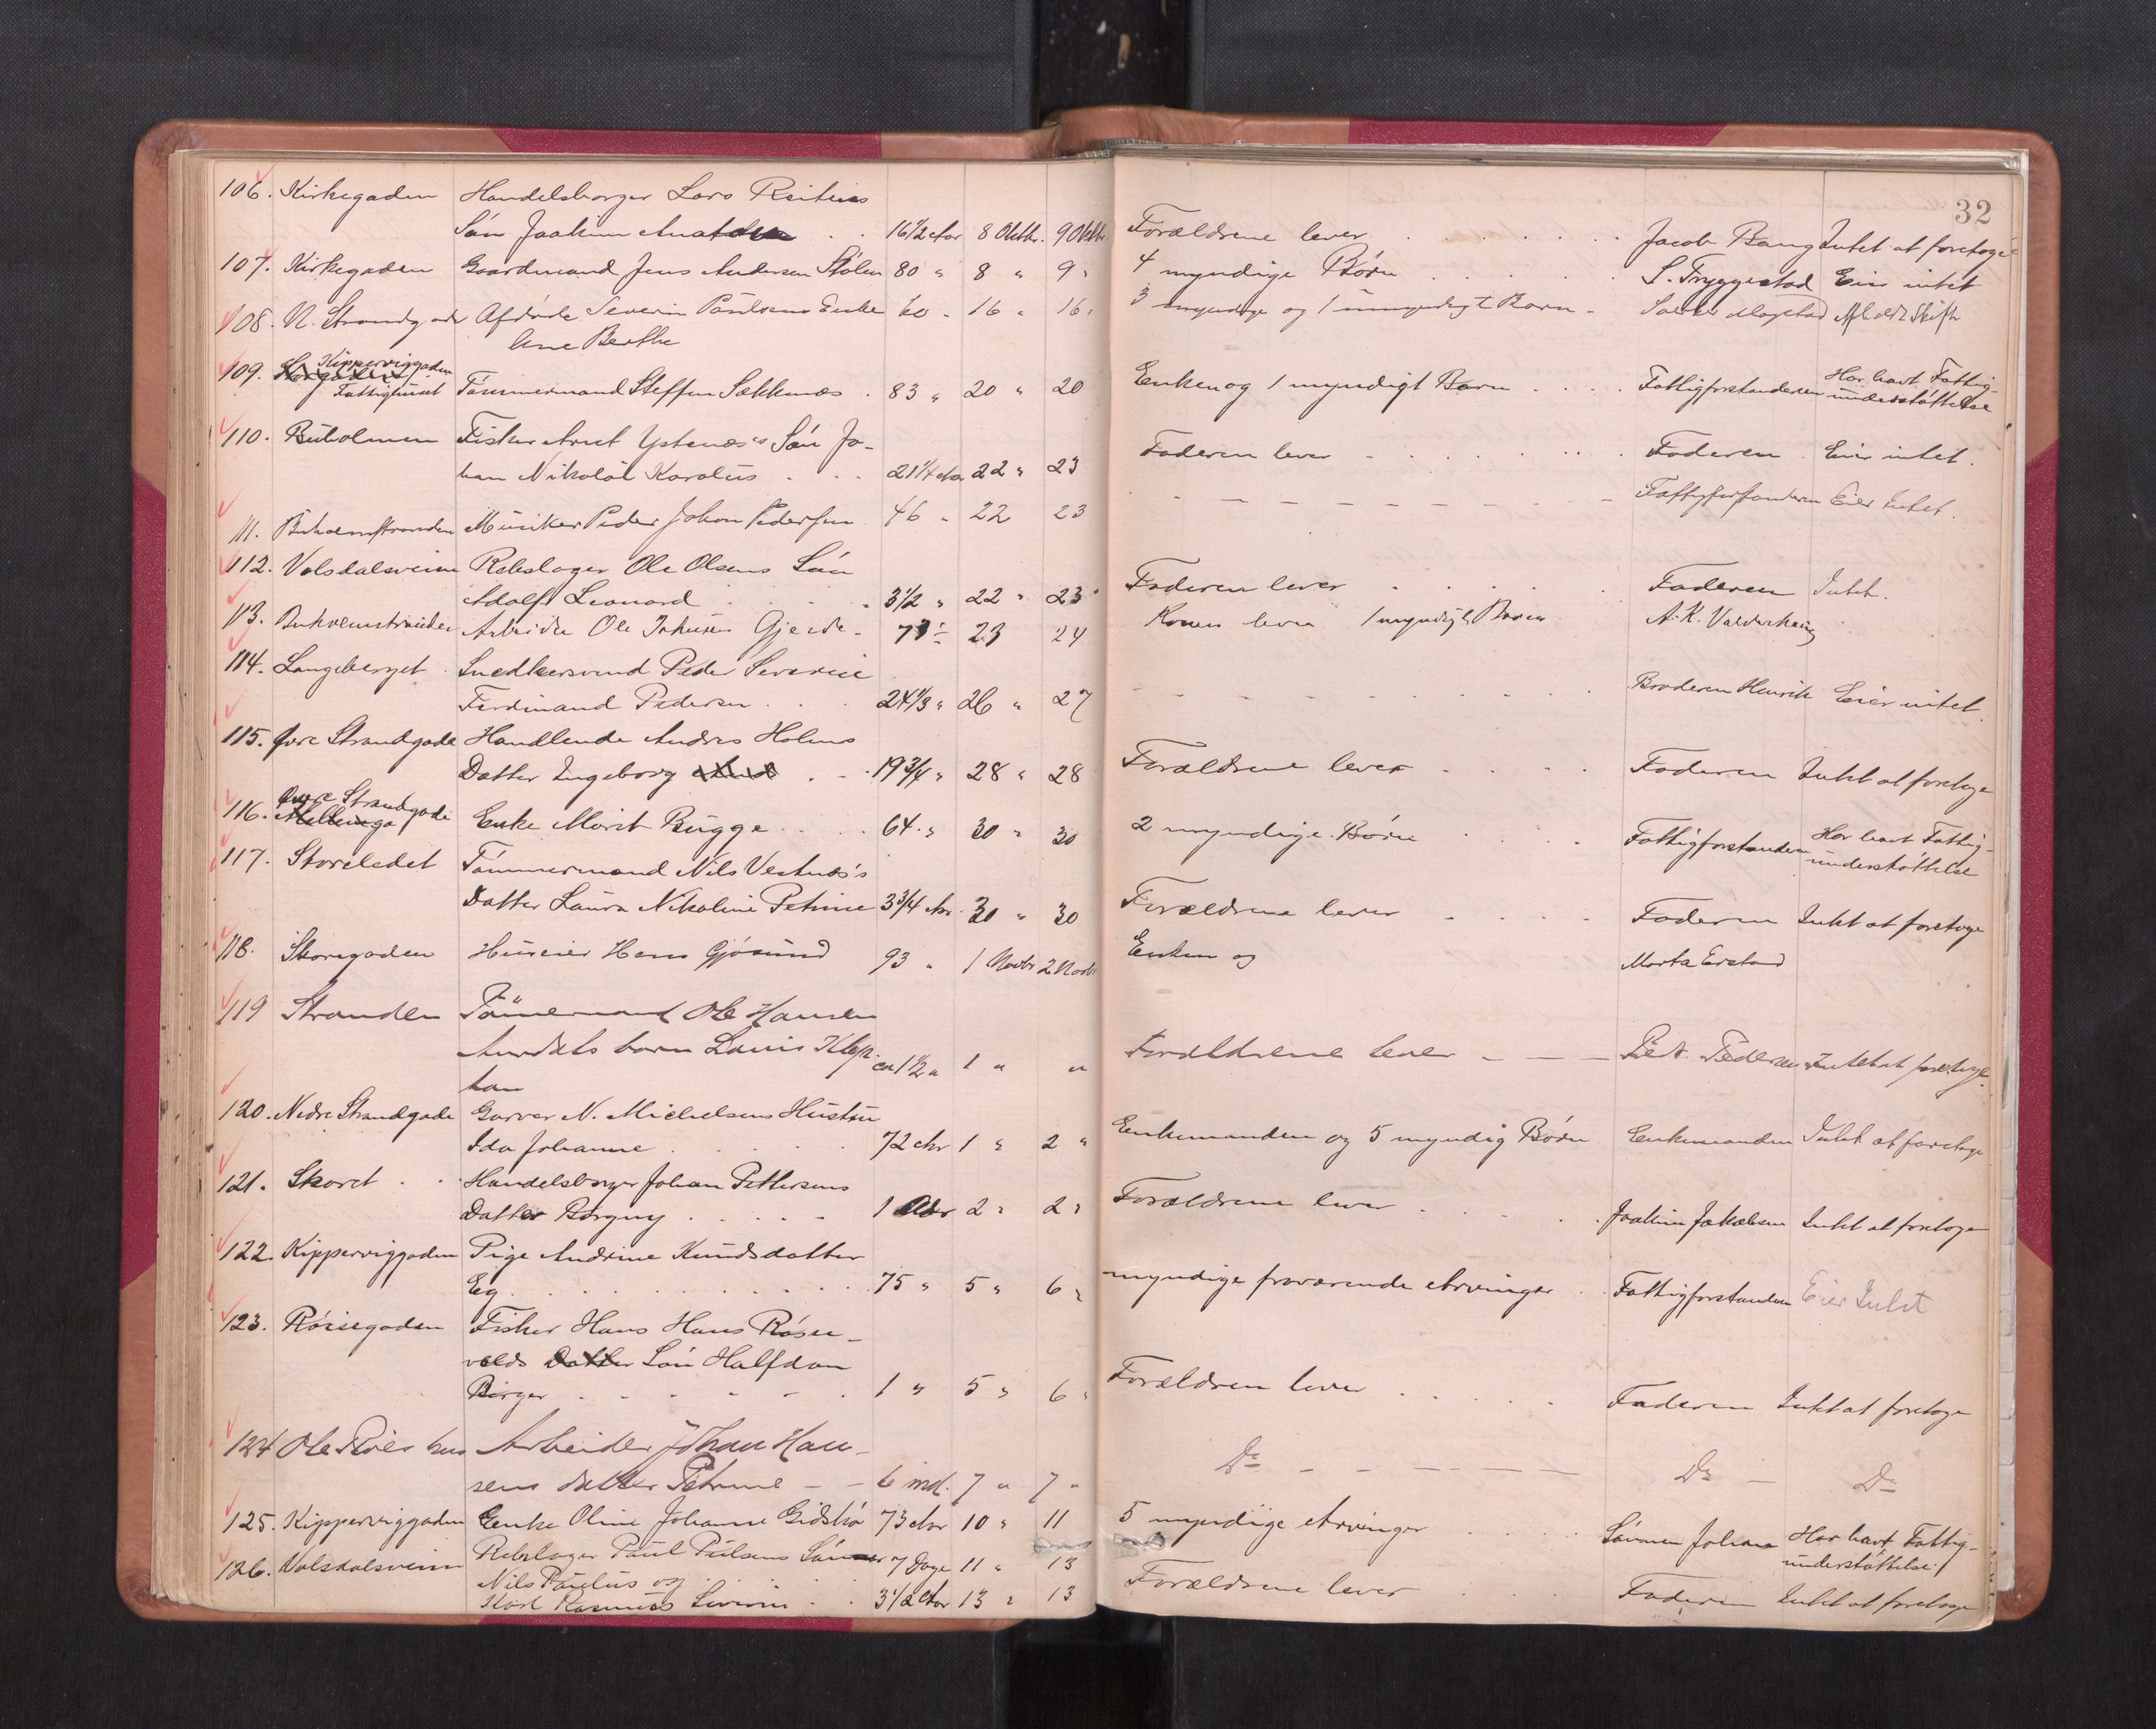 32
106. Kirkegaden Handelsborger Lars
Søn Joakim 16½ Aar 8 Oktbr. 9 Oktbr. Forældrene lever Jacob Bang Intet at foretage
107. Kirkegaden Gaardmand Jens Andersen Stølen 80 " 8 " 9 " 4 myndige Børn S. Tryggestad Eier intet
108. N. Strandgade Afdøde Severin Paulsens Enke 60 " 16 " 16 " 3 myndige og 1 umyndigt Barn Afholdt Skifte
Ane Berthe
109. Kipperviggaden
Fattighuset Tømmermand Steffen Sækkenæs 83 " 20 " 20 Enken og 1 myndigt Barn Fattigforstanderen Har havt Fattig-
understøttelse
110. Buholmen Fisker Knut Ystenæs's Søn Jo-
han Nikolai Karolus 21¼ Aar 22 " 23 Faderen lever Faderen Eier intet.
111. Buholmstranden Musiker Peder Johan Pedersen 46 " 22 23 Fattigforstanderen Eier Intet.
112. Volsdalsveien Rebslager Ole Olsens Søn
Adolf Leonard 3½ " 22 " 23 " Faderen lever Faderen Intet.
113. Buholmstranden Arbeider Ole Johnsen Gjerde 23 24 Konen lever 1 myndigt Barn A. K. Valderhaug
114. Langeberget Snedkersvend Peder Severin
Ferdinand Pedersen 24⅓ " 26 " 27 Broderen Henrik Eier intet.
115. Øvre Strandgade Handlende Andres Holms
Datter Ingeborg 19¾ " 28 " 28 Forældrene lever Faderen Intet at foretage
116. Øvre Strandgade Enke Marit Bugge 64 " 30 " 30 2 myndige Børn Fattigforstanderen Har havt Fattig-
understøttelse
117. Storeledet Tømmermand Nils Vestnæs's
Datter Laura Nikoline Petrine 3¾ Aar 30 " 30 Forældrene lever Faderen Intet at foretage
118. Storegaden Huseier Hans Gjøsund 93 " 1 Novbr 2 Novbr Enken og Marta Erstad
119 Stranden Tømmermand Ole Hansen
Aurdals barn Louis Klep-
ca 1½ " 1 " " Forældrene lever Pet. Pedersen Intet at foretage
120. Nedre Strandgade Garver N. Michelsens Hustru
Ida Johanne 72 Aar 1 " 2 " Enkemanden og 5 myndig Børn Enkemanden Intet at foretage
121. Skaret Handelsborger Johan Pettersens
Datter Borgny 1 Aar 2 " 2 " Forældrene lever Joakim Jakobsen Intet at foretage
122. Kipperviggaden Pige Andrine Knudsdatter
Eg 75 " 5 " 6 " myndige fraværende Arvinger Fattigforstanderen Eier Intet
123. Røisegaden Fisker Hans Hans Røsen-
valds Datter Søn Halfdan
Birger 1 " 5 " 6 " Forældren lever Faderen Intet at foretage
124 Ole hus Arbeider Johan Han-
sens datter Petrine 6 md. 7 " 7 " Do Do Do
125. Kipperviggaden Enke Oline Johanne Gidskø 73 Aar 10 " 11 5 myndige Arvinger Sønnen Johan Har havt Fattig-
understøttelse
126. Volsdalsveien Rebslager Paul Pulsens Søn 7 Dage 11 " 13
Nils Paulus og
Karl Rasmus Severin 3½ Aar 13 " 13 Forældrene lever Faderen Intet at foretage